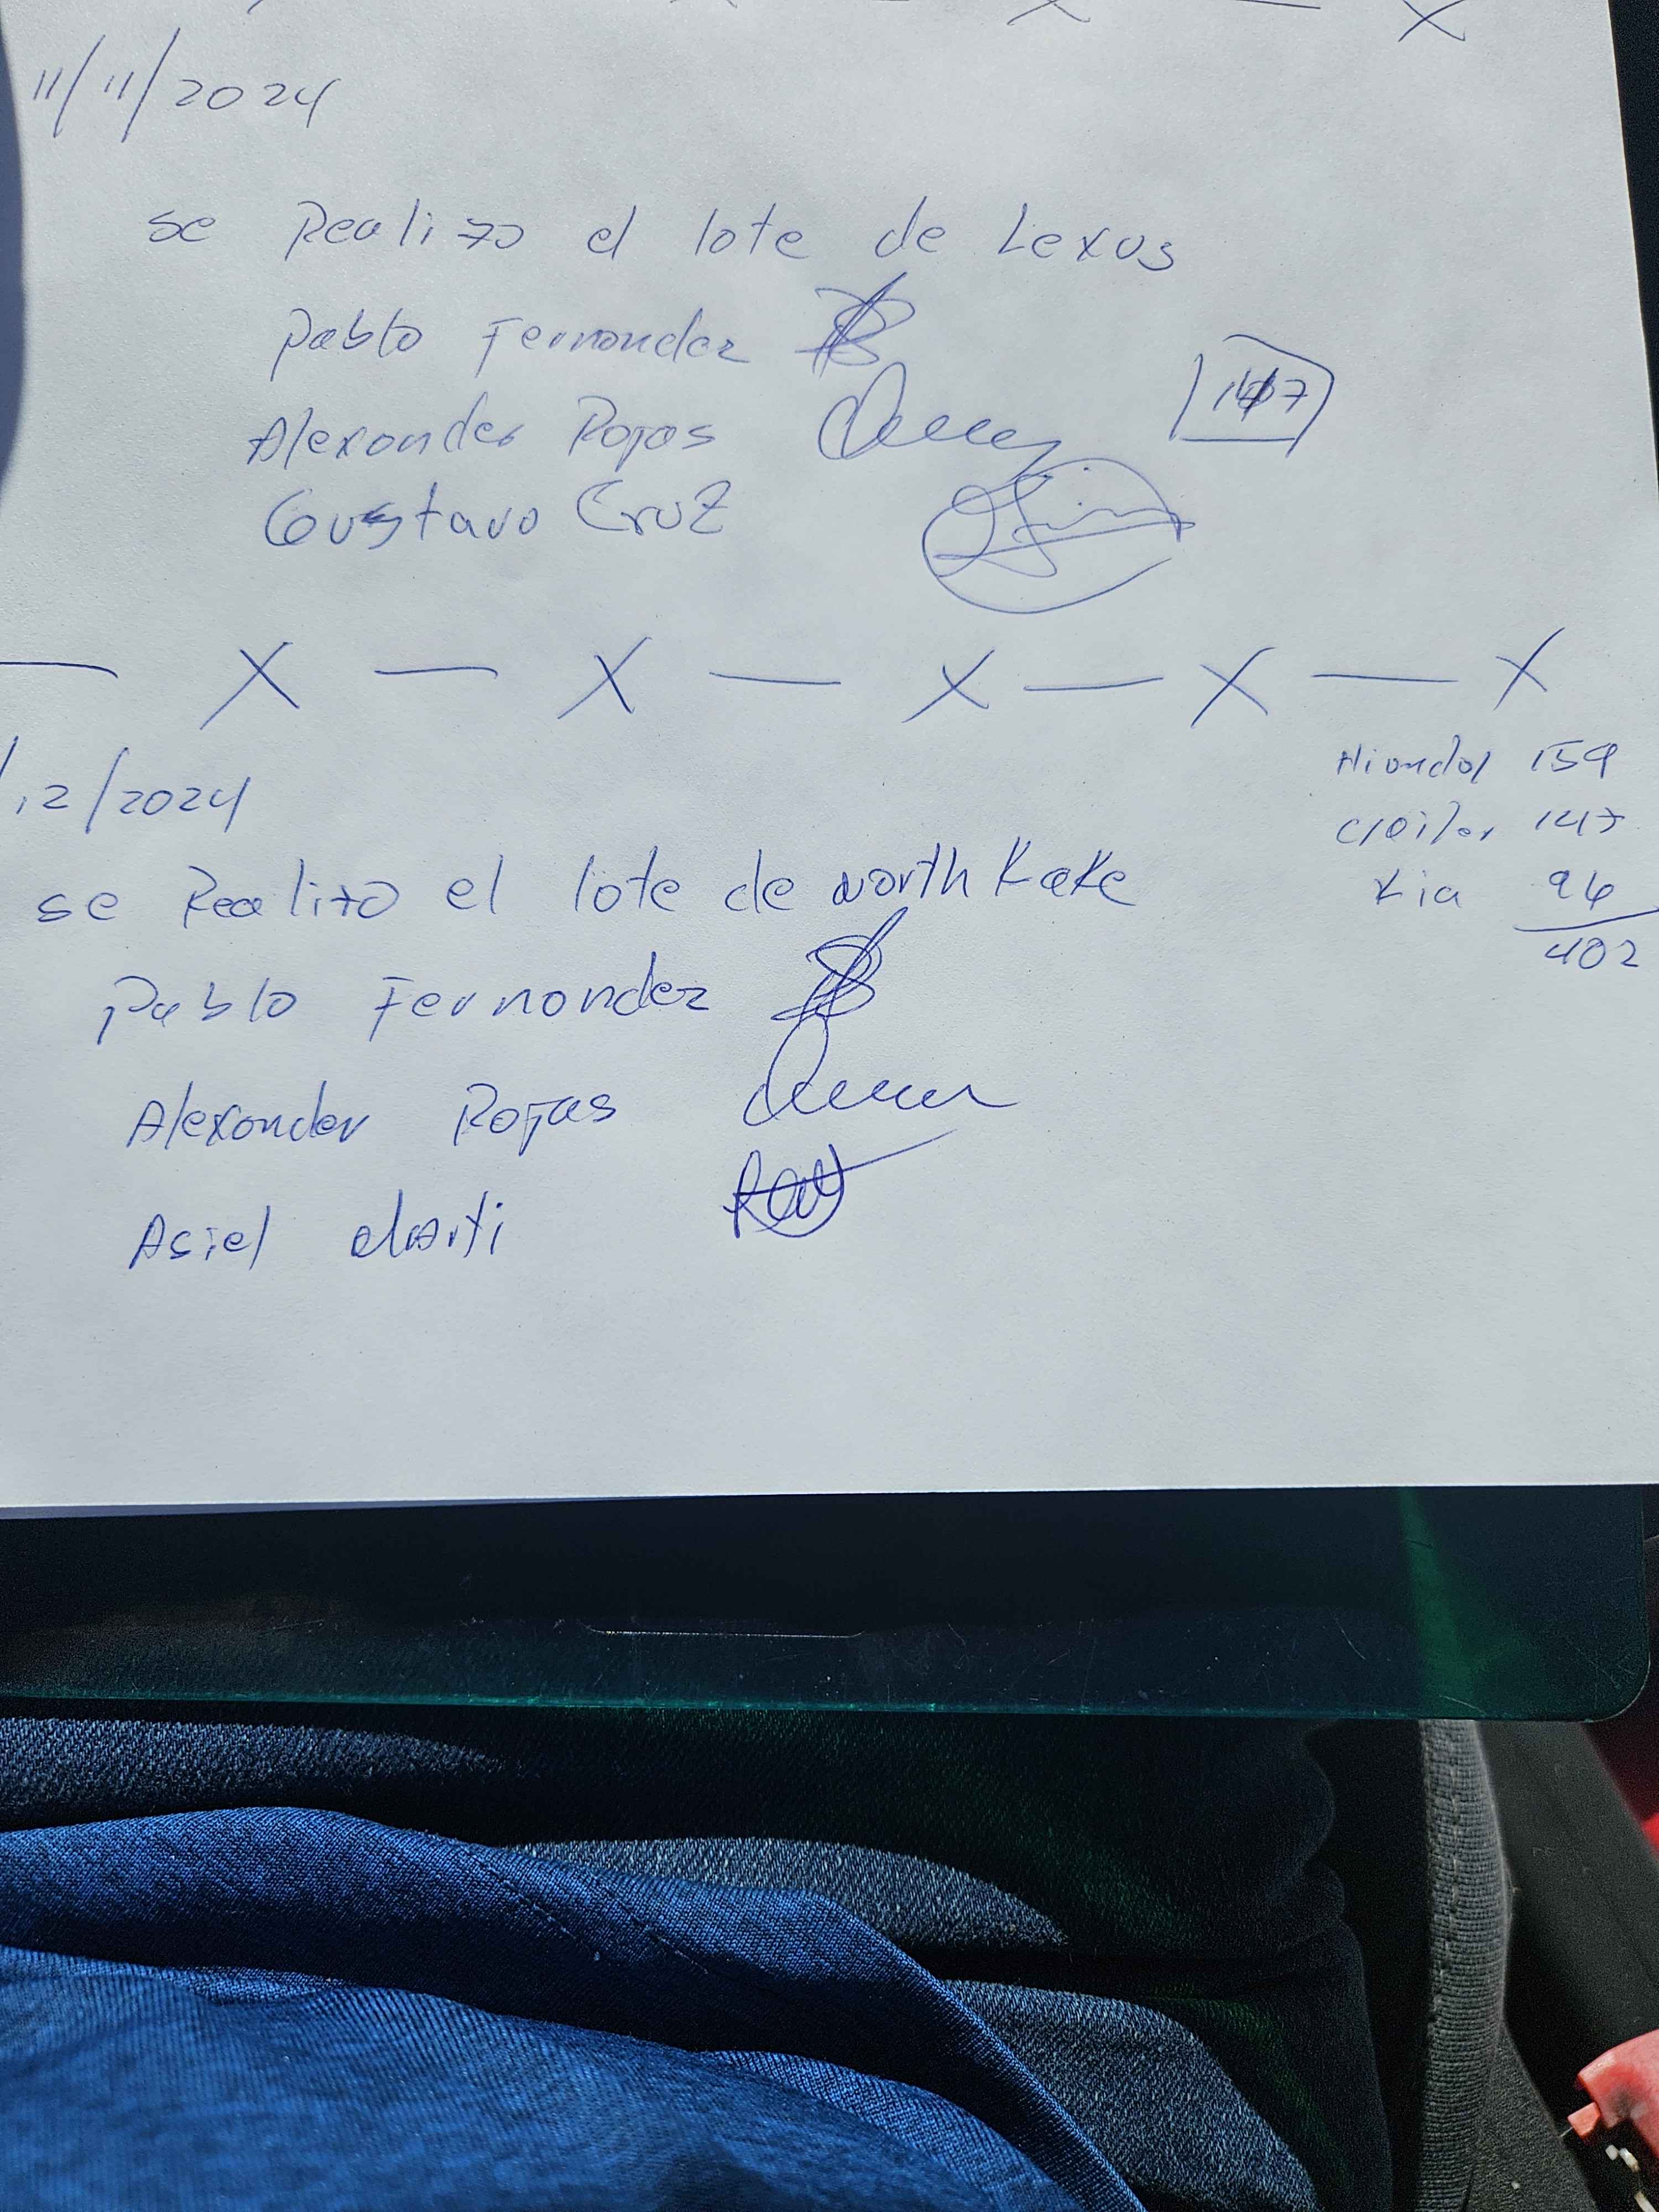 11/11/2024
se Realizo el lote de Lexus
Pablo Fernandez
Alexander Rojas
147
Gustavo Cruz
X — X — X — X — X
/12/2024
Hiondai 159
147
Kia 96
402
se Realizo el lote de north Kake
Pablo Fernandez
Alexander Rojas
Asiel Marti